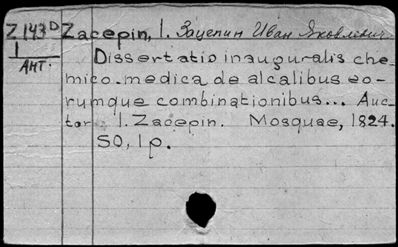 Z 143 D Zacepin, I. Зацепин Иван Яковлевич
1
АНТ.
Dissertatio inauguralis che-
mico-medica de alcalibus eo-
rumque combinationibus... Auc-
tore I. Zacepin. Mosquae, 1824.
50, 1 p.